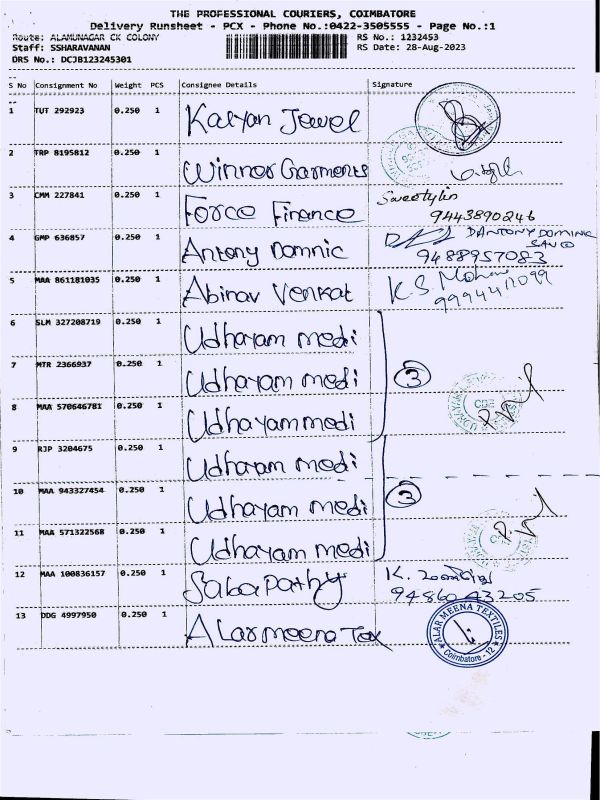 THE PROFESSIONAL COURIERS, COIMBATORE
Delivery Runsheet - PCX - Phone No.:0422-3505555 - Page No.:1
Route: ALAMUNAGAR CK COLONY RS No.: 1232453
Staff: SSHARAVANAN RS Date: 28-Aug-2023
DRS No.: DCJB123245301
S No Consignment No Weight PCS Consignee Details Signature
1 TUT 292923 0.250 1 Kalyan Jewel
2 TRP 8195812 0.250 1 Winner Garments
3 CMM 227841 0.250 1 Force Finance Sweetylin
9443890246
4 GMP 636857 0.250 1 Antony Domnic D ANTONY DOMINIC
SAVIO
9488957083
5 MAA 861181035 0.250 1 Abinav Venkat K.S. Mohan
6 SLM 327208719 0.250 1 Udhayam medi
7 MTR 2366937 0.250 1 Udhayam medi 3
8 MAA 570646781 0.250 1 Udhayam medi
9 RJP 3204675 0.250 1 Udhayam medi
10 MAA 943327454 0.250 1 Udhayam medi 3
11 MAA 571322568 0.250 1 Udhayam medi
12 MAA 100836157 0.250 1 Sabapathy K.
9486043205
13 DDG 4997950 0.250 1 Alarmeena Tex
ALAR MEENA TEXTILES
Coimbatore - 12